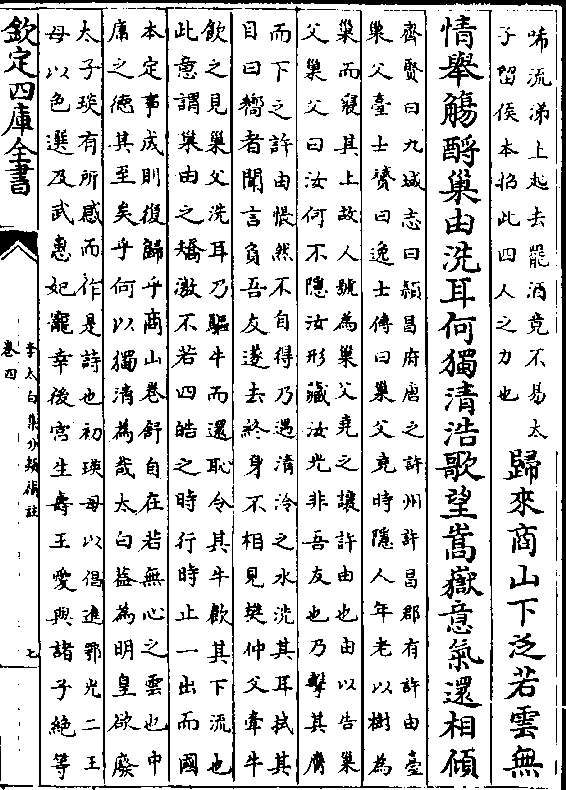 唏流涕上起去罷酒竟不易太
子留侯本招此四人之力也
歸來商山下泛若雲無
情舉觴酹巢由洗耳何獨清浩歌望嵩嶽意氣還相傾
齊賢曰九域志曰潁昌府唐之許州許昌郡有許由臺
巢父臺士贇曰逸士傳曰巢父堯時隱人年老以樹為
巢而寢其上故人號為巢父堯之讓許由也由以告巢
父巢父曰汝何不隱汝形藏汝光非吾友也乃擊其膺
而下之許由悵然不自得乃遇清泠之水洗其耳拭其
目曰嚮者聞言負吾友遂去終身不相見樊仲父牽牛
飲之見巢父洗耳乃驅牛而還恥令其牛飲其下流也
此意謂巢由之矯激不若四皓之時行時止一出而國
本定事成則復歸乎商山卷舒自在若無心之雲也中
庸之德其至矣乎何以獨清為哉太白葢為明皇欲廢
太子瑛有所感而作是詩也初瑛母以倡進鄂光二王
母以色選及武惠妃寵幸後宮生壽王愛與諸子絶等
欽定四庫全書
李太白集分類補註
卷四
七